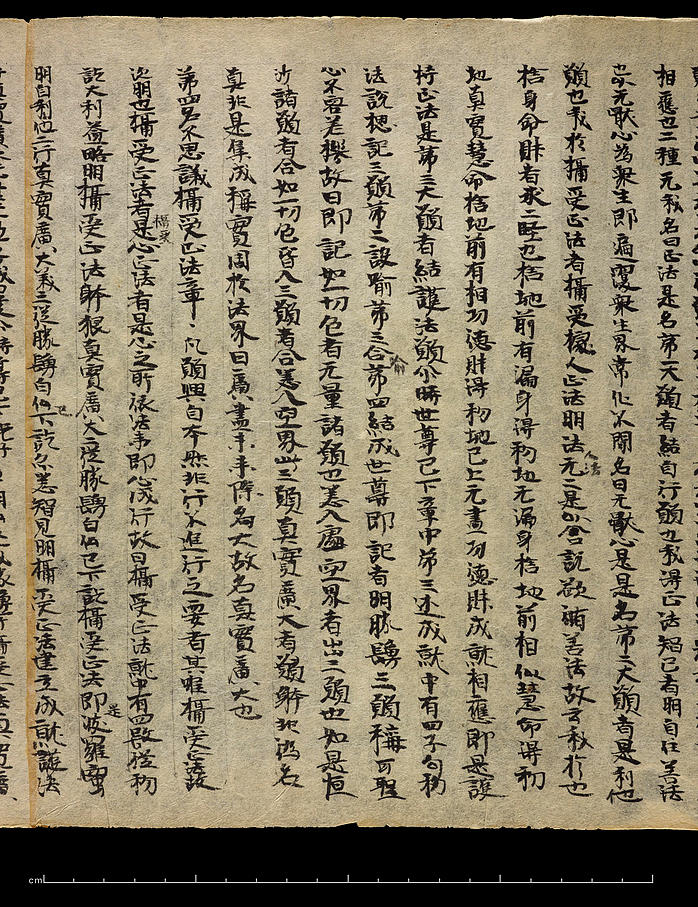 相應也二種元我名曰正法是名第一大願者結自行願也我得正法智已者明自住善法
也以无猒心為衆生即遍覆衆生界常化不闕名曰无猒心是是名第二大願者是利他
願也我於攝受正法者攝受據人正法明法人法无二是以合說欲備善法故言我於也
捨身命財者求二時也捨地前有漏身得初地无漏身捨地前相似慧命得初
地真實慧命捨地前有相功德財得初地已上无盡功德財成就相應即是護
持正法是第三大願者結護法願尒時世尊已下章中第三述成就中有四子句初
法說揔記三願第二設喻第三合第四結成世尊即記者明勝鬘三願稱可聖
心不容差機故曰即記如一切色者无量諸願也悉入虛空界者出三願也如是恒
沙諸願者合如一切色皆入三願者合悉入空界此三願真實廣大者願體非偽名
真非是集成稱實周於法界曰廣盡未來際為大故名真實廣大也
第四名不思議攝受正法章凡願興自本然非行不進行之要者其唯攝受正法故
次明也攝受正法者攝受是心正法者是心之所依法事即心成行故曰攝受正法就中有四段從初
訖大利益略明攝受正法體貌真實廣大從勝鬘白仏已下訖攝受正法即是波羅蜜
明自利他二行真實廣大義三從勝鬘白仏已下訖尒善智見明攝受正法建立成就護法